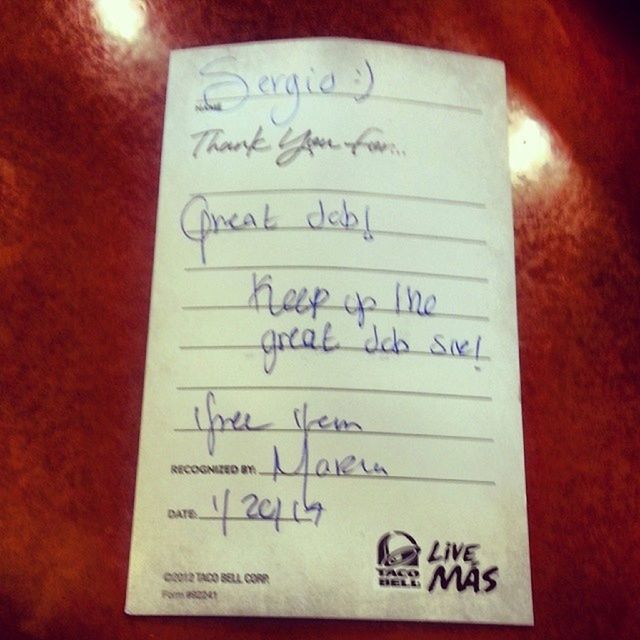 Sergio :)
NAME
Thank You for...
Great Job!
Keep up the
great Job
free item
RECOGNIZED BY:
DATE: 1/20/14
©2012 TACO BELL CORP.
Form #82241
TACO
BELL
LIVE
MÁS